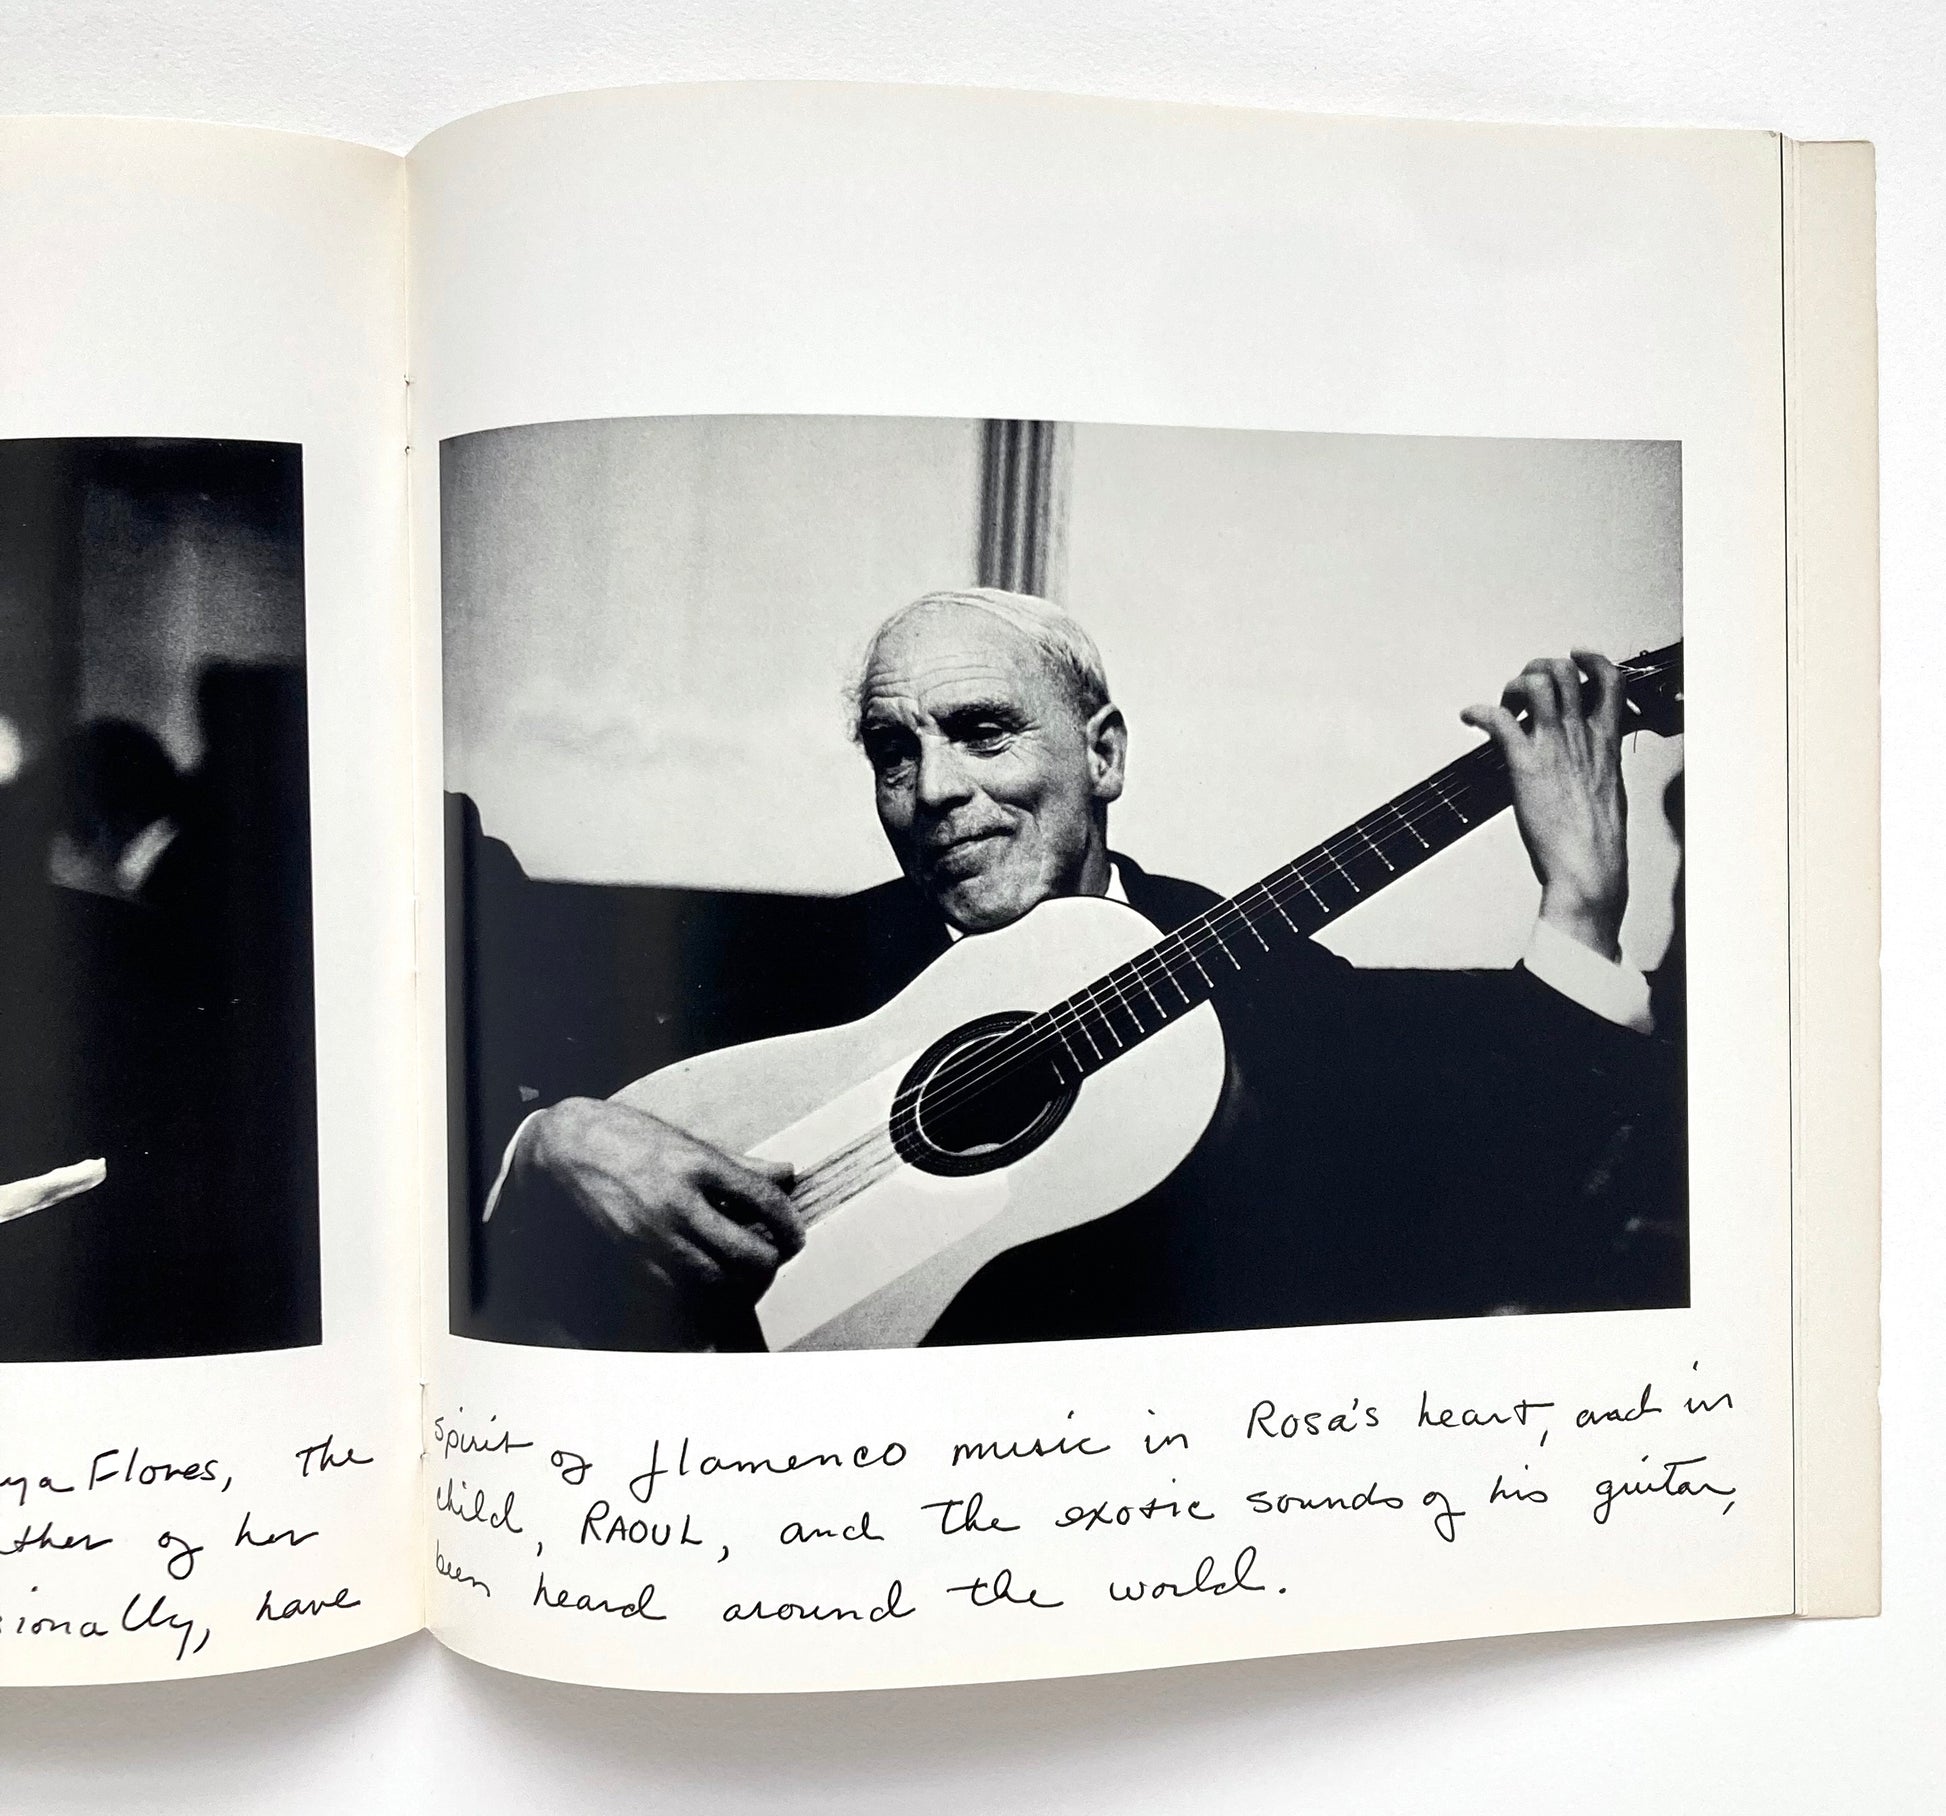 ya Flores, the spirit of flamenco music in Rosa's heart, and in
ther of her child, RAOUL, and the exotic sounds of his guitar,
sionally, have been heard around the world.